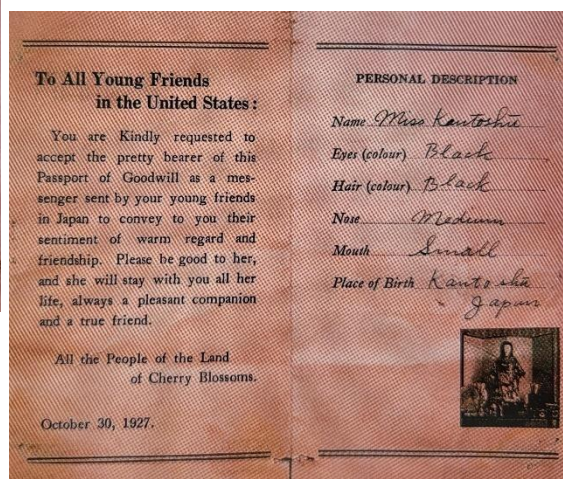 To All Young Friends
in the United States:
You are Kindly requested to
accept the pretty bearer of this
Passport of Goodwill as a mes-
senger sent by your young friends
in Japan to convey to you their
sentiment of warm regard and
friendship. Please be good to her,
and she will stay with you all her
life, always a pleasant companion
and a true friend.
All the People of the Land
of Cherry Blossoms.
October 30, 1927.
PERSONAL DESCRIPTION
Name Miss Kantoshu
Eyes (colour) Black
Hair (colour) Black
Nose Medium
Mouth Small
Place of Birth Kantoshu
Japan